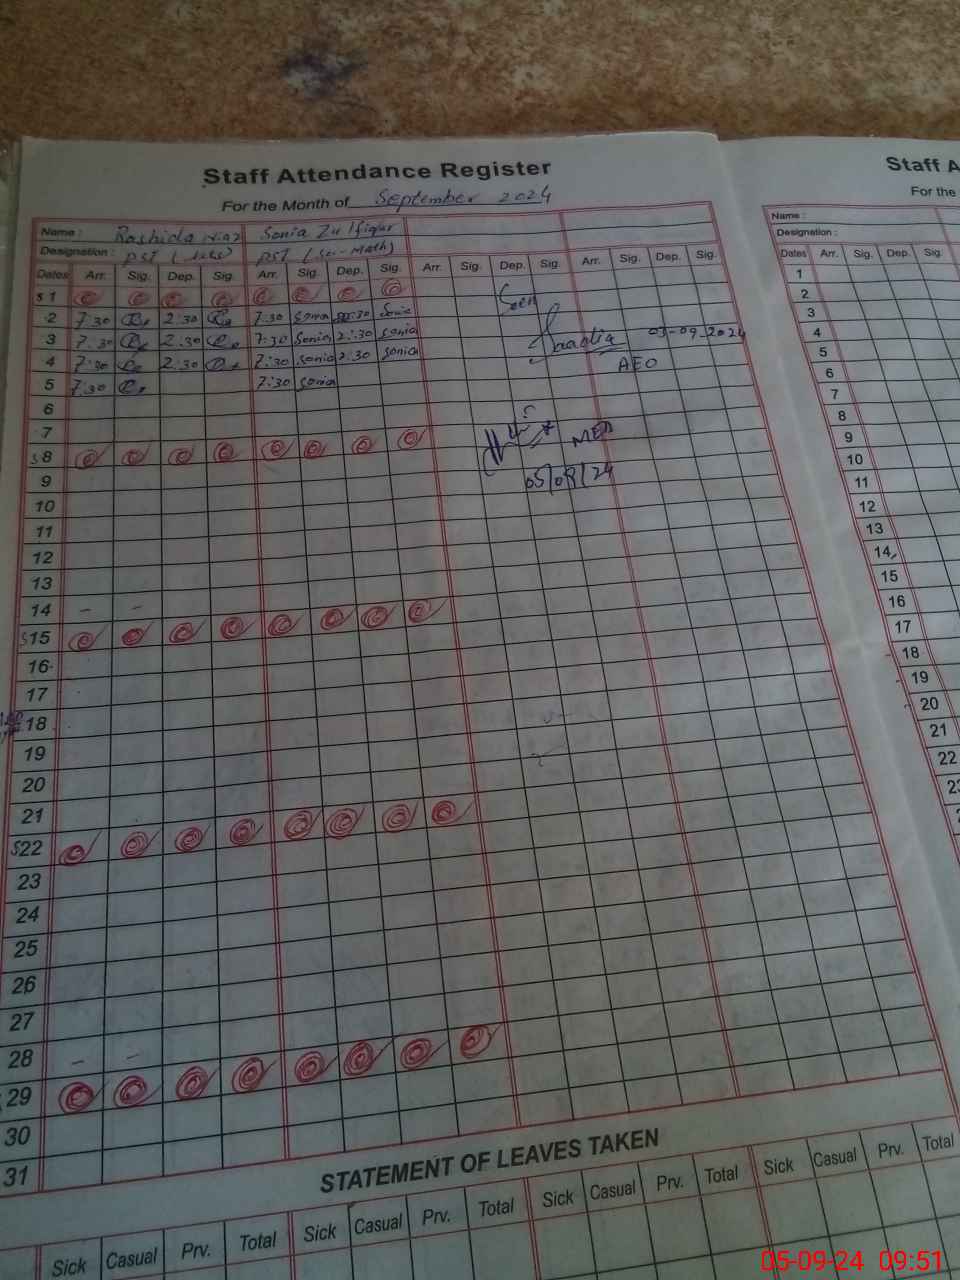 Staff Attendance Register
For the Month of September 2024
Name : Rashida Niaz Sonia Zulfiqar
Designation : PST ( PST (Sci-Math)
Dates Arr. Sig. Dep. Sig. Arr. Sig. Dep. Sig. Arr. Sig. Dep. Sig. Arr. Sig. Dep. Sig.
S 1
2 7:30 2:30 7:30 Sonia 2:30 Sonia
3 7:30 2:30 7:30 Sonia 2:30 Sonia
4 7:30 2:30 7:30 Sonia 2:30 Sonia
5 7:30 7:30 Sonia
6
7
S 8
9
10
11
12
13
14 – –
S 15
16
17
18
19
20
21
S 22
23
24
25
26
27
28 – –
29
30
31
Seen
Saadia 03-09-2024
AEO
05/09/24
STATEMENT OF LEAVES TAKEN
Sick Casual Prv. Total Sick Casual Prv. Total Sick Casual Prv. Total Sick Casual Prv. Total
Staff A
For the
Name :
Designation :
Dates Arr. Sig. Dep. Sig.
1
2
3
4
5
6
7
8
9
10
11
12
13
14
15
16
17
18
19
20
21
22
05-09-24 09:51